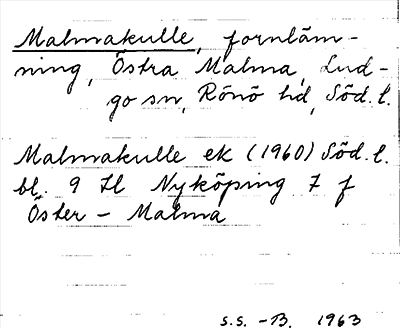 Malmakulle, fornläm-
ning, Östra Malma, Lud-
go sn, Rönö hd, Söd. l.
Malmakulle ek (1960) Söd. l.
bl. 9 Il Nyköping 7 f
Öster - Malma
S.S. -B. 1963